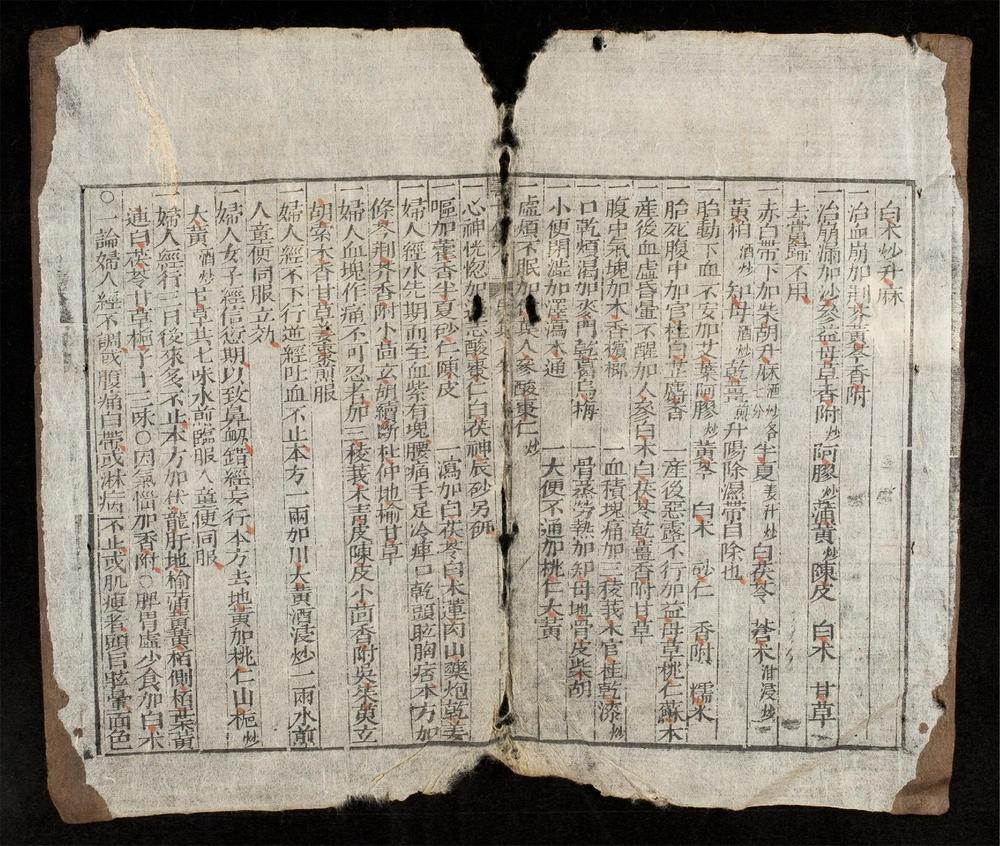 白朮炒升麻
一治血崩加荆芥黃芩香附
一治崩漏加沙參益母草香附炒阿膠炒蒲黃炒陳皮 白朮 甘草
去當歸不用
一赤白帶下加柴胡升麻酒炒各七分半夏姜汁炒白茯苓 蒼朮泔浸炒
黃栢酒炒知母酒炒乾薑煎升陽除濕帶自除也
一胎動下血不安加艾葉阿膠炒黃芩 白朮 砂仁 香附 糯米
一胎死腹中加官桂白芷麝香 一產後惡露不行加益母草桃仁蘇木
一產後血虛昏暈不醒加人參白朮白茯苓乾薑香附甘草
一腹中氣塊加木香檳榔 一血積塊痛加三稜莪朮官桂乾漆炒
一口乾煩渴加麥門乾葛烏梅 一骨蒸勞熱加知母地骨皮柴胡
一小便閉澁加澤瀉木通 一大便不通加桃仁大黃
一虛煩不眠加人參酸棗仁炒
一心神恍惚加酸棗仁白茯神辰砂另研
一嘔加藿香半夏砂仁陳皮 一瀉加白茯苓白朮蓮肉山藥炮乾姜
一婦人經水先期而至血紫有塊腰痛手足冷痺口乾頭眩胸痞本方加
條芩荆芥香附小茴玄胡續斷杜仲地榆甘草
一婦人血塊作痛不可忍者加三稜莪朮青皮陳皮小茴香附吳茱萸玄
胡索木香甘草姜棗煎服
一婦人經不下行逆經吐血不止本方一兩加川大黃酒浸炒一兩水煎
入童便同服立效
一婦人女子經信愆期以致鼻衂錯經妄行本方去地黃加桃仁山梔炒
大黃酒炒甘草共七味水煎臨服入童便同服
一婦人經行三日後來多不止本方加伏龍肝地榆蒲黃黃栢側栢葉黃
連白茯苓甘草梔子十三味○因氣惱加香附○脾胃虛少食加白朮
○一論婦人經不調或腹痛白帶或淋瀝不止或肌瘦者頭目眩暈面色